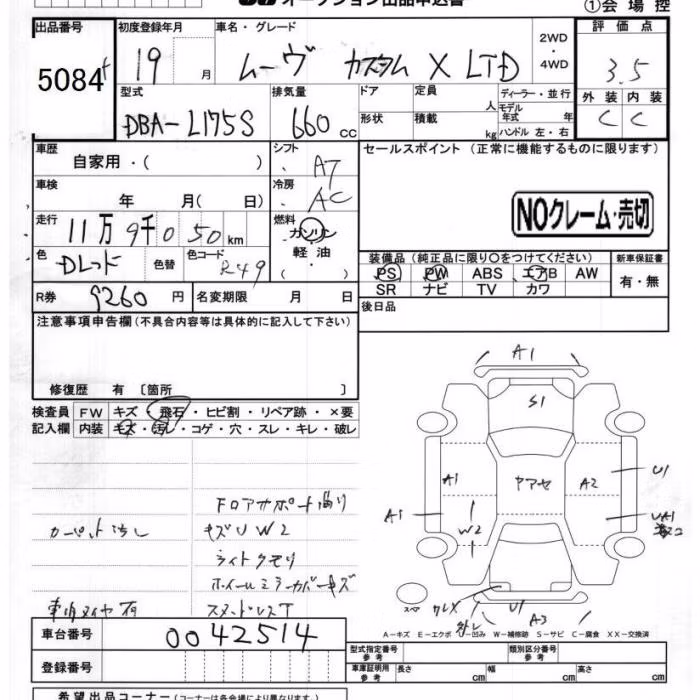 オークション出品申込書 ①会場控
出品番号 初度登録年月 車名・グレード 評価点
5084 19 月 ムーヴ カスタム X LTD 2WD・4WD 3.5
型式 排気量 ドア 定員 人 ディーラー・並行 外装 内装
DBA-L175S 660 cc 形状 積載 kg モデル年式 年 C C
ハンドル 左・右
車歴 シフト セールスポイント (正常に機能するものに限ります)
自家用・( ) AT
車検 年 月(日) 冷房 AC
NOクレーム・売切
走行 11万9千050km 燃料 ガソリン 軽油 ・( )
色 Dレッド 色替 色コード R49
装備品 (純正品に限り○をつけてください) 新車保証書
PS PW ABS エアB AW 有・無
SR ナビ TV カワ
R券 9260 円 名変期限 月 日 後日品
注意事項申告欄 (不具合内容等は具体的に記入して下さい)
修復歴 有 〔箇所 〕
検査員 FW キズ・飛石・ヒビ割・リペア跡・×要
記入欄 内装 キズ・汚レ・コゲ・穴・スレ・キレ・破レ
A1
S1
A1 ヤアセ A2 U1
A1 W2
キズU W2
ライトクモリ
スタッドレスT
U1 A3
スペア
A-キズ E-エクボ U-凹み W-補修跡 S-サビ C-腐食 XX-交換済
車台番号 0042514
登録番号
型式指定番号 参考 類別区分番号 参考
車庫証明用 参考 長さ cm 幅 cm 高さ cm
希望出品コーナー (コーナーは各会場により異なります。)